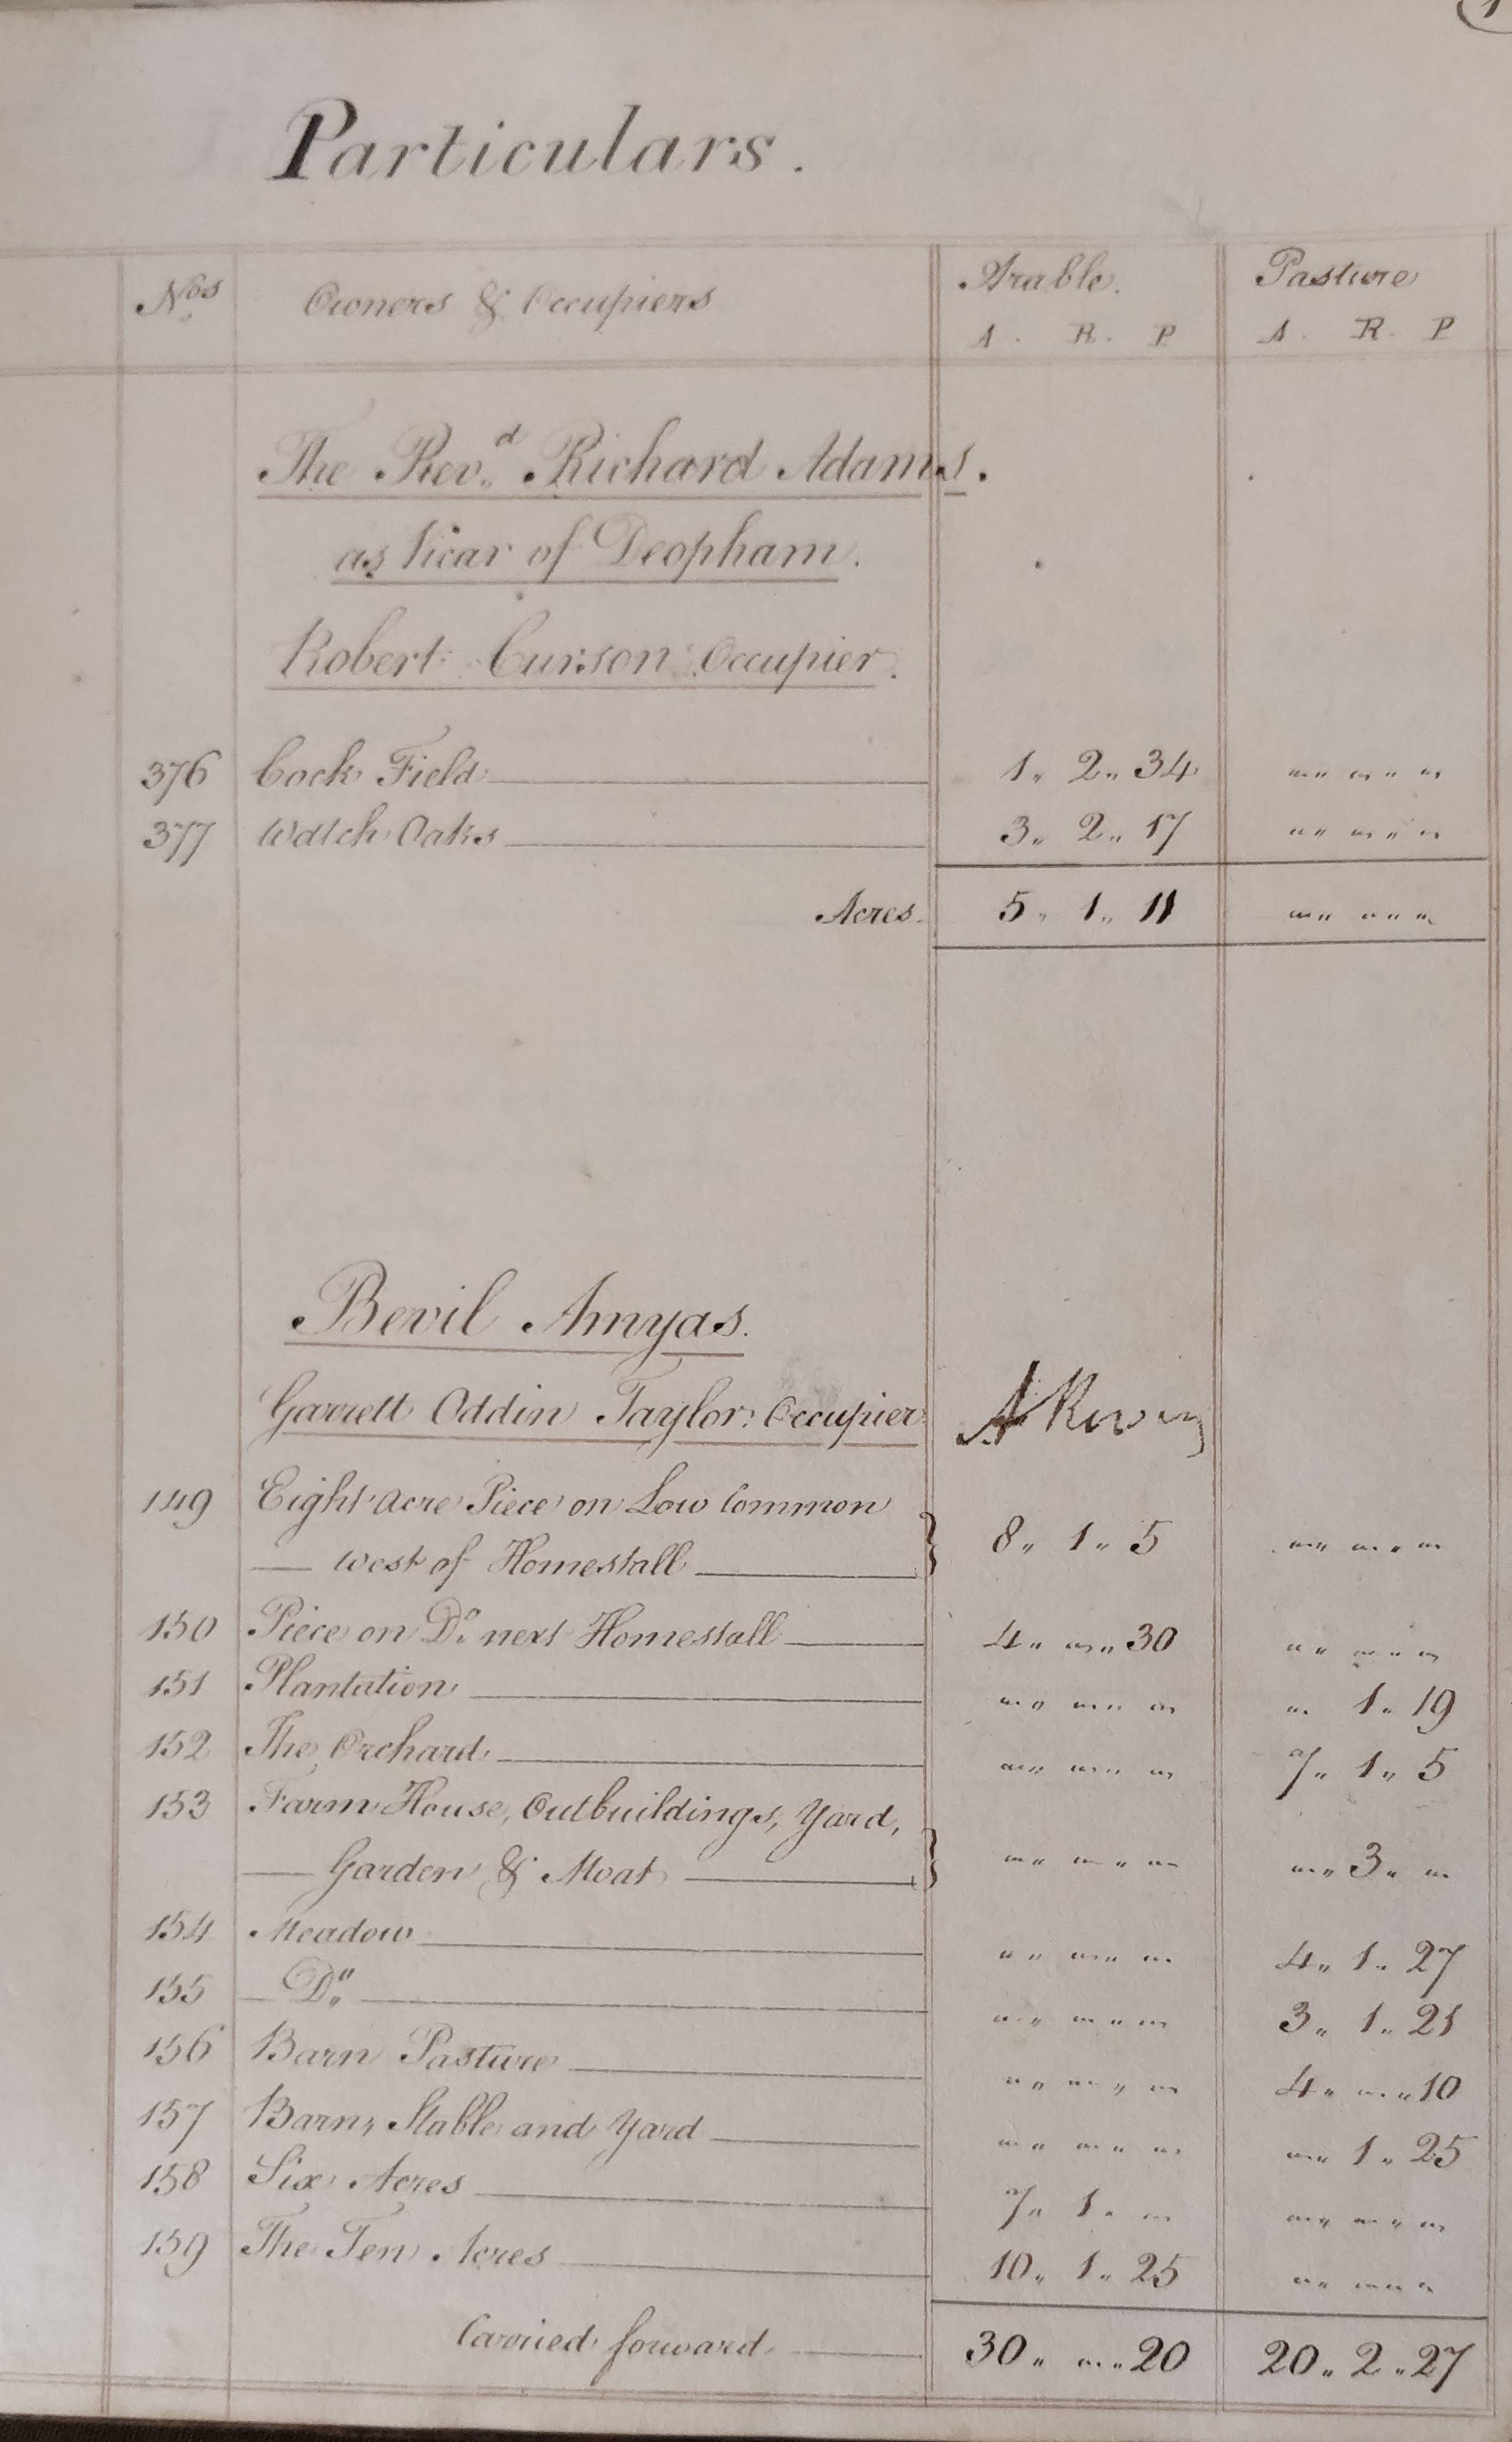 Particulars.
Nos Owners & Occupiers Arable. Pasture
A. R. P A. R. P
The Revd. Richard Adams.
as Vicar of Deopham.
Robert Curson Occupier.
376 Cock Field 1,, 2,, 34 " " "
377 Watch Oaks 3,, 2,, 17 " " "
Acres. 5,, 1,, 11 " " "
Bevil Amyas.
Garrett Oddin Taylor: Occupier
149 Eight Acre Piece on Low Common
— West of Homestall } 8,, 1,, 5 " " "
150 Piece on Do. next Homestall 4,, " 30 " " "
151 Plantation " " " " 1,, 19
152 The Orchard " " " 7,, 1,, 5
153 Farm House, Outbuildings, Yard,
— Garden & Moat } " " " " 3,, "
154 Meadow " " " 4,, 1,, 27
155 — Do. " " " 3,, 1,, 21
156 Barn Pasture " " " 4,, " 10
157 Barn, Stable and Yard " " " " 1,, 25
158 Six Acres 7,, 1,, " " " "
159 The Ten Acres 10,, 1,, 25 " " "
Carried forward 30,, " 20 20,, 2,, 27